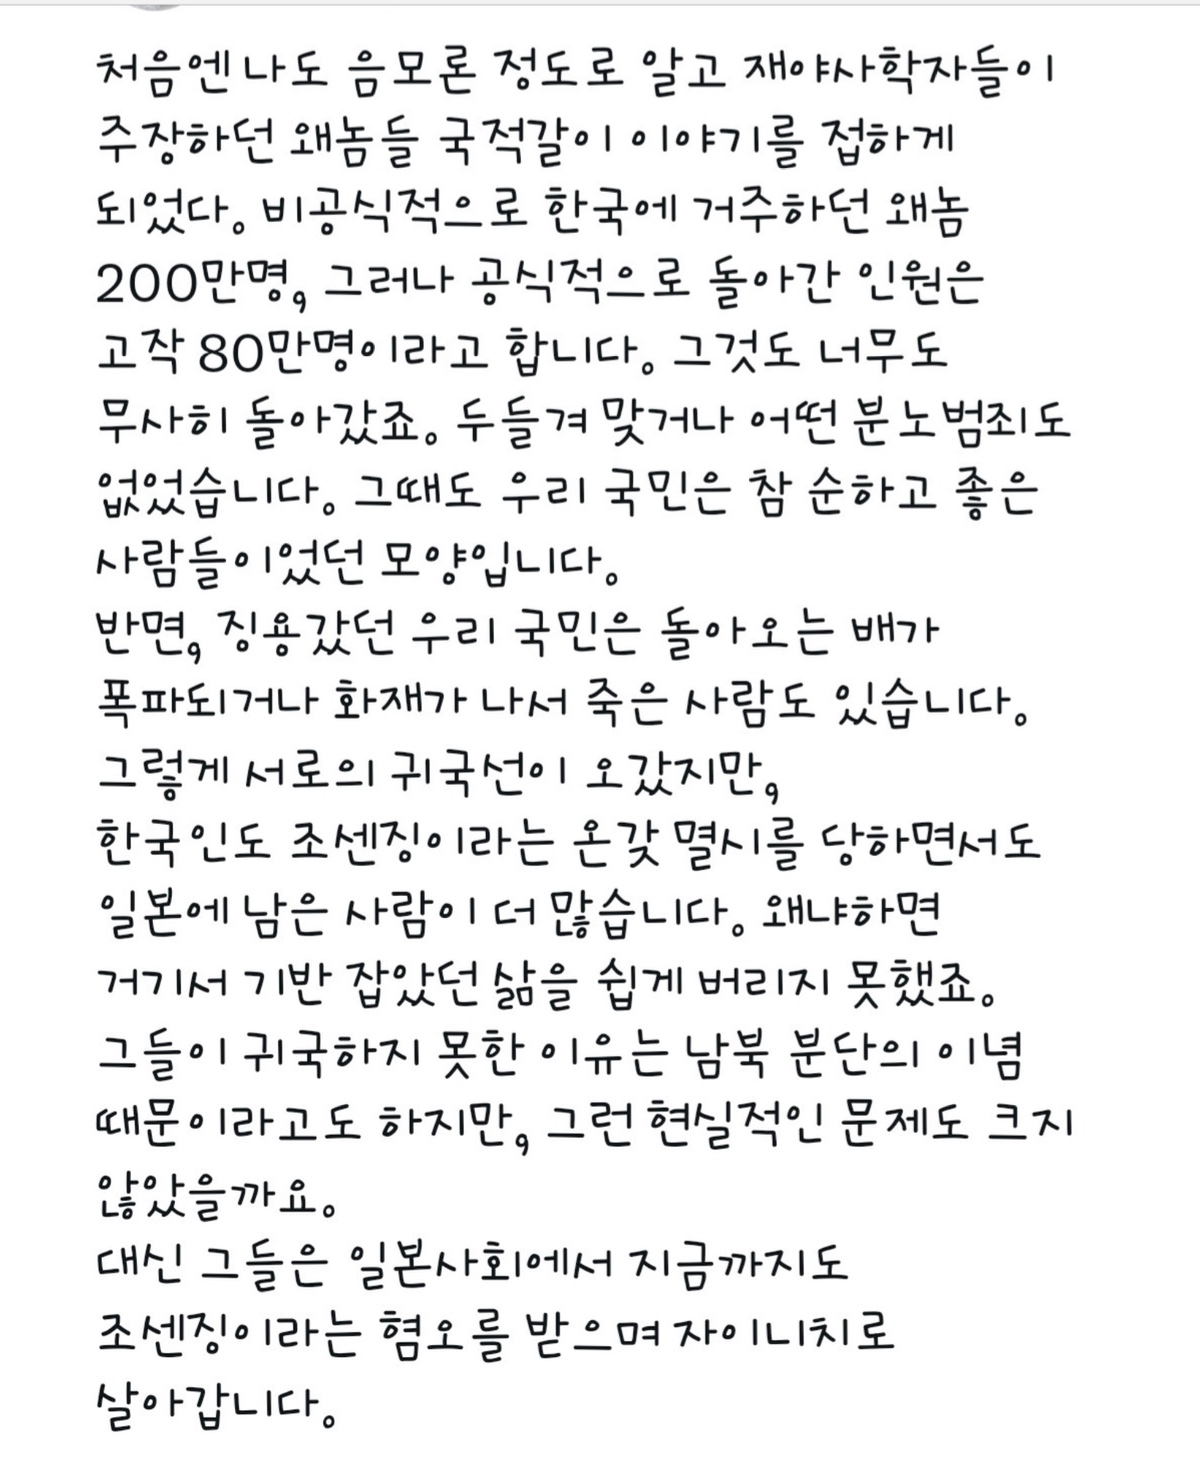 처음엔 나도 음모론 정도로 알고 재야사학자들이
주장하던 왜놈들 국적갈이 이야기를 접하게
되었다. 비공식적으로 한국에 거주하던 왜놈
200만명, 그러나 공식적으로 돌아간 인원은
고작 80만명이라고 합니다. 그것도 너무도
무사히 돌아갔죠. 두들겨 맞거나 어떤 분노범죄도
없었습니다. 그때도 우리 국민은 참 순하고 좋은
사람들이었던 모양입니다.
반면, 징용갔던 우리 국민은 돌아오는 배가
폭파되거나 화재가 나서 죽은 사람도 있습니다.
그렇게 서로의 귀국선이 오갔지만,
한국인도 조센징이라는 온갖 멸시를 당하면서도
일본에 남은 사람이 더 많습니다. 왜냐하면
거기서 기반 잡았던 삶을 쉽게 버리지 못했죠.
그들이 귀국하지 못한 이유는 남북 분단의 이념
때문이라고도 하지만, 그런 현실적인 문제도 크지
않았을까요.
대신 그들은 일본사회에서 지금까지도
조센징이라는 혐오를 받으며 자이니치로
살아갑니다.